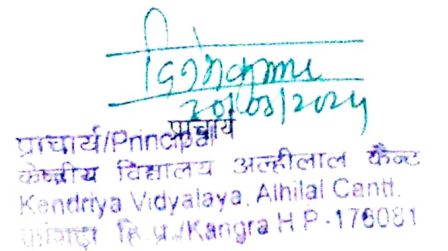 20/03/2024
प्राचार्य
प्राचार्य/Principal
केन्द्रीय विद्यालय अल्हीलाल कैन्ट
Kendriya Vidyalaya, Alhilal Cantt.
हि.प्र./Kangra H P -176081